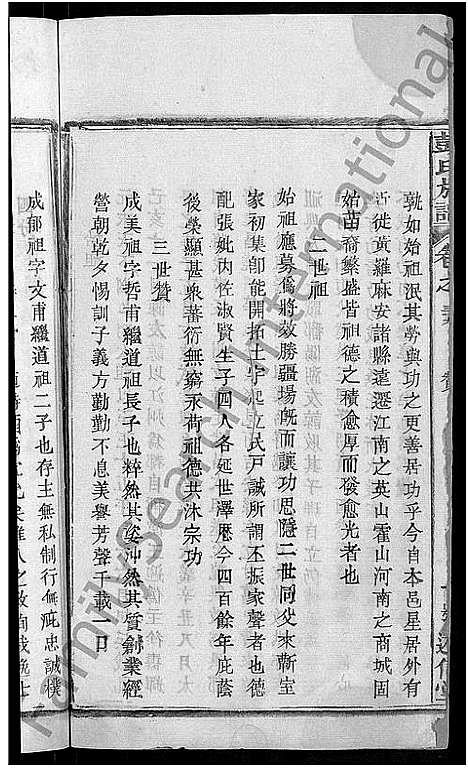 彭氏族譜
卷之
孰如始祖泯其勞與功之更善居功乎今自本邑星居外有
近徙黃羅麻安諸縣遠遷江南之英山霍山河南之商城固
始苗裔繁盛皆祖德之積愈厚而發愈光者也
二世祖
始祖應募偽將效勝疆場旣而讓功思隱二世同父來蘄室
家初集卽能開拓土宇起立民戸誠所謂丕振家聲者也德
配張妣內佐淑賢生子四人各延世澤歷今四百餘年庇蔭
後榮顯甚衆蕃衍無窮永荷祖德共沐宗功
三世贊
成美祖字哲甫繼道祖長子也粹然其姿沖然其質創業經
營朝乾夕惕訓子義方勤勤不息美譽芳聲千載一日
成郁祖字文甫繼道祖二子也存主無私制行無疵忠誠樸
FamilySearch International